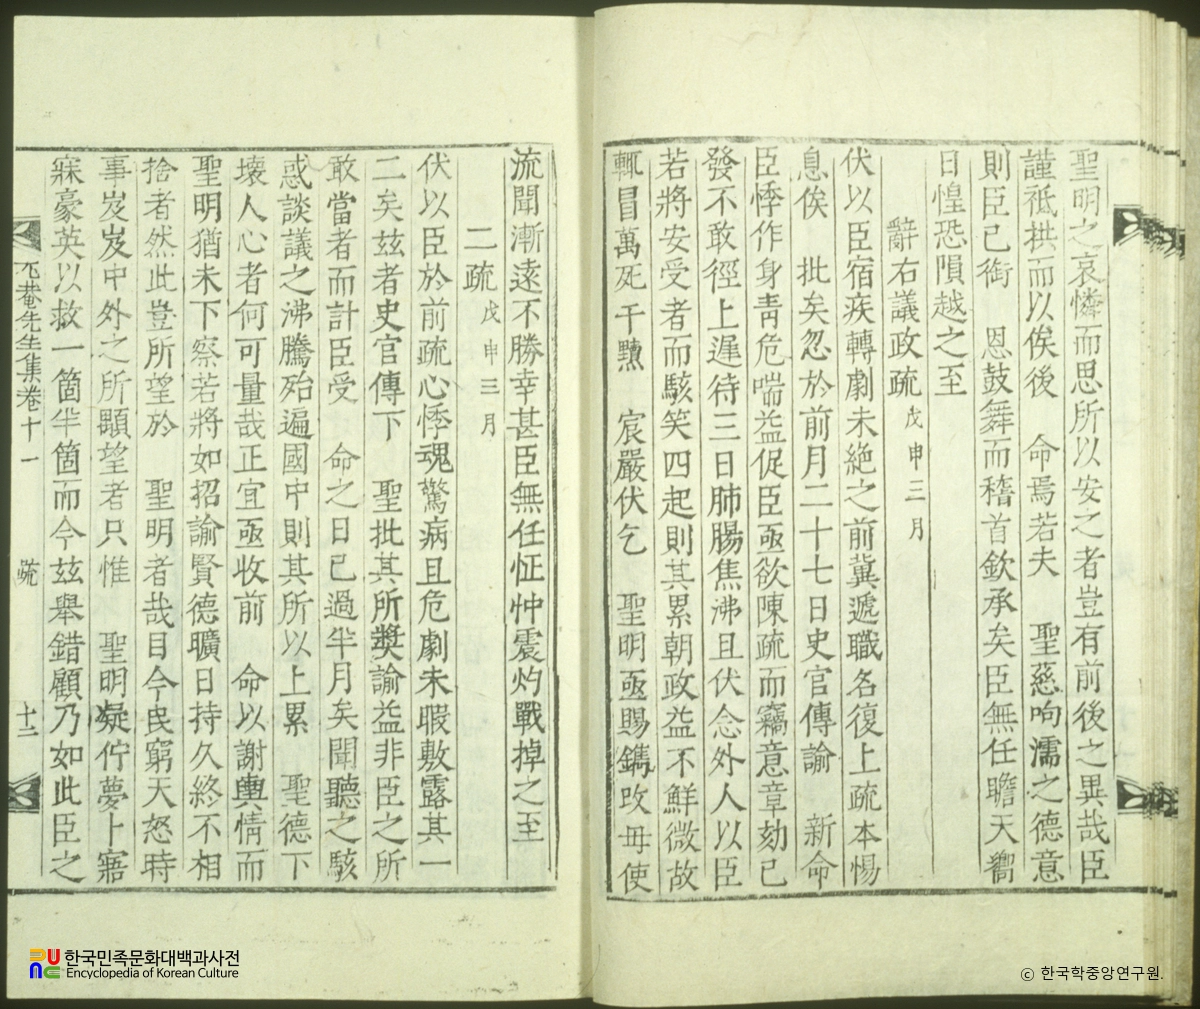 聖明之哀憐而思所以安之者豈有前後之異哉臣
謹祗拱而以俟後 命焉若夫 聖慈呴濡之德意
則臣已銜 恩鼓舞而稽首欽承矣臣無任瞻天嚮
日惶恐隕越之至
辭右議政疏 戊申三月
伏以臣宿疾轉劇未絶之前冀遞職名復上疏本惕
息俟 批矣忽於前月二十七日史官傳諭 新命
臣悸作身靑危喘益促臣亟欲陳疏而竊意章劾已
發不敢徑上遲待三日肺腸焦沸且伏念外人以臣
若將安受者而駭笑四起則其累朝政益不鮮微故
輒冒萬死干黷 宸嚴伏乞 聖明亟賜鐫改毋使
流聞漸遠不勝幸甚臣無任怔忡震灼戰掉之至
二疏 戊申三月
伏以臣於前疏心悸魂驚病且危劇未暇敷露其一
二矣玆者史官傳下 聖批其所奬諭益非臣之所
敢當者而計臣受 命之日已過半月矣聞聽之駭
惑談議之沸騰殆遍國中則其所以上累 聖德下
壞人心者何可量哉正宜亟收前 命以謝輿情而
聖明猶未下察若將如招諭賢德曠日持久終不相
捨者然此豈所望於 聖明者哉目今民窮天怒時
事岌岌中外之所顒望者只惟 聖明凝佇夢卜寤
寐豪英以救一箇半箇而今玆擧錯顧乃如此臣之
菴先生集卷十一 疏 十二
한국민족문화대백과사전
Encyclopedia of Korean Culture
© 한국학중앙연구원.